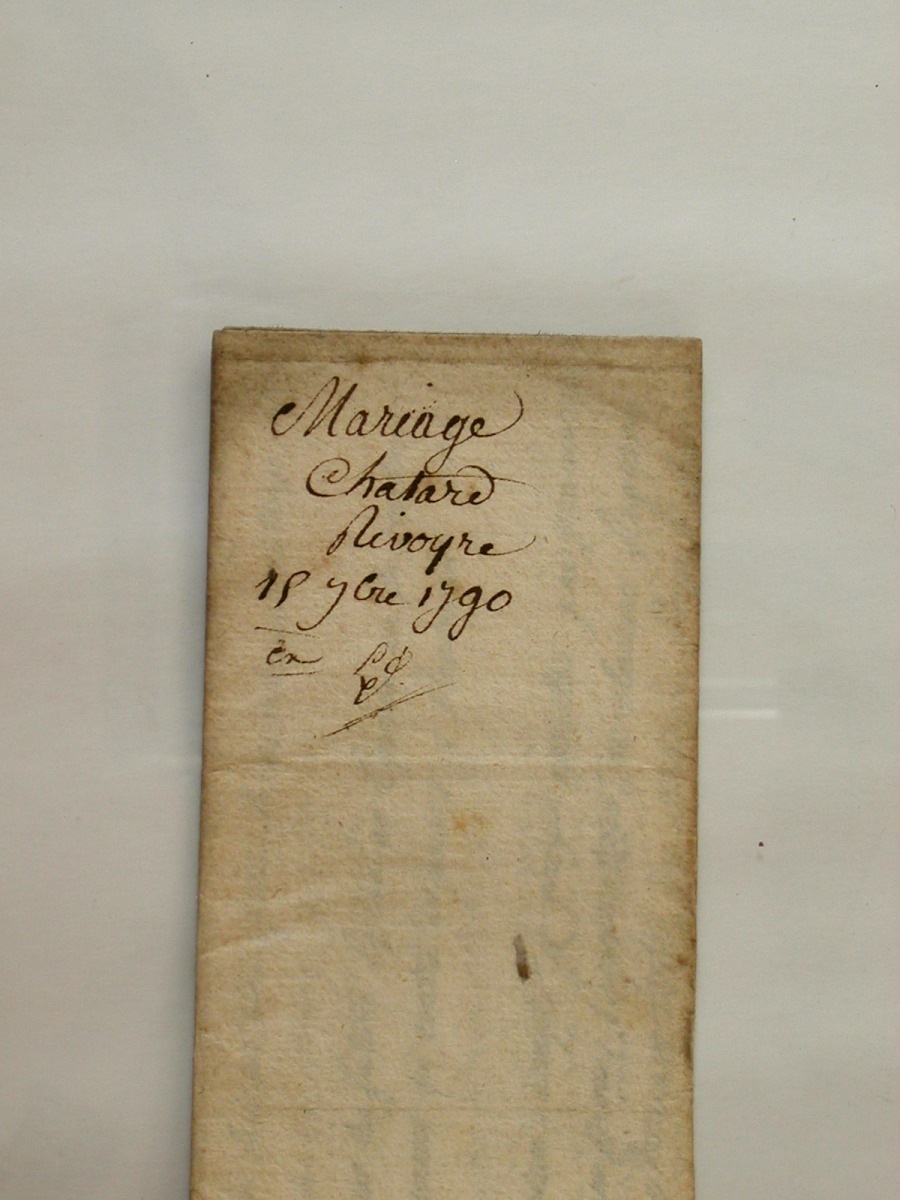 Mariage
Chatard
Rivoyre
15 7bre 1790